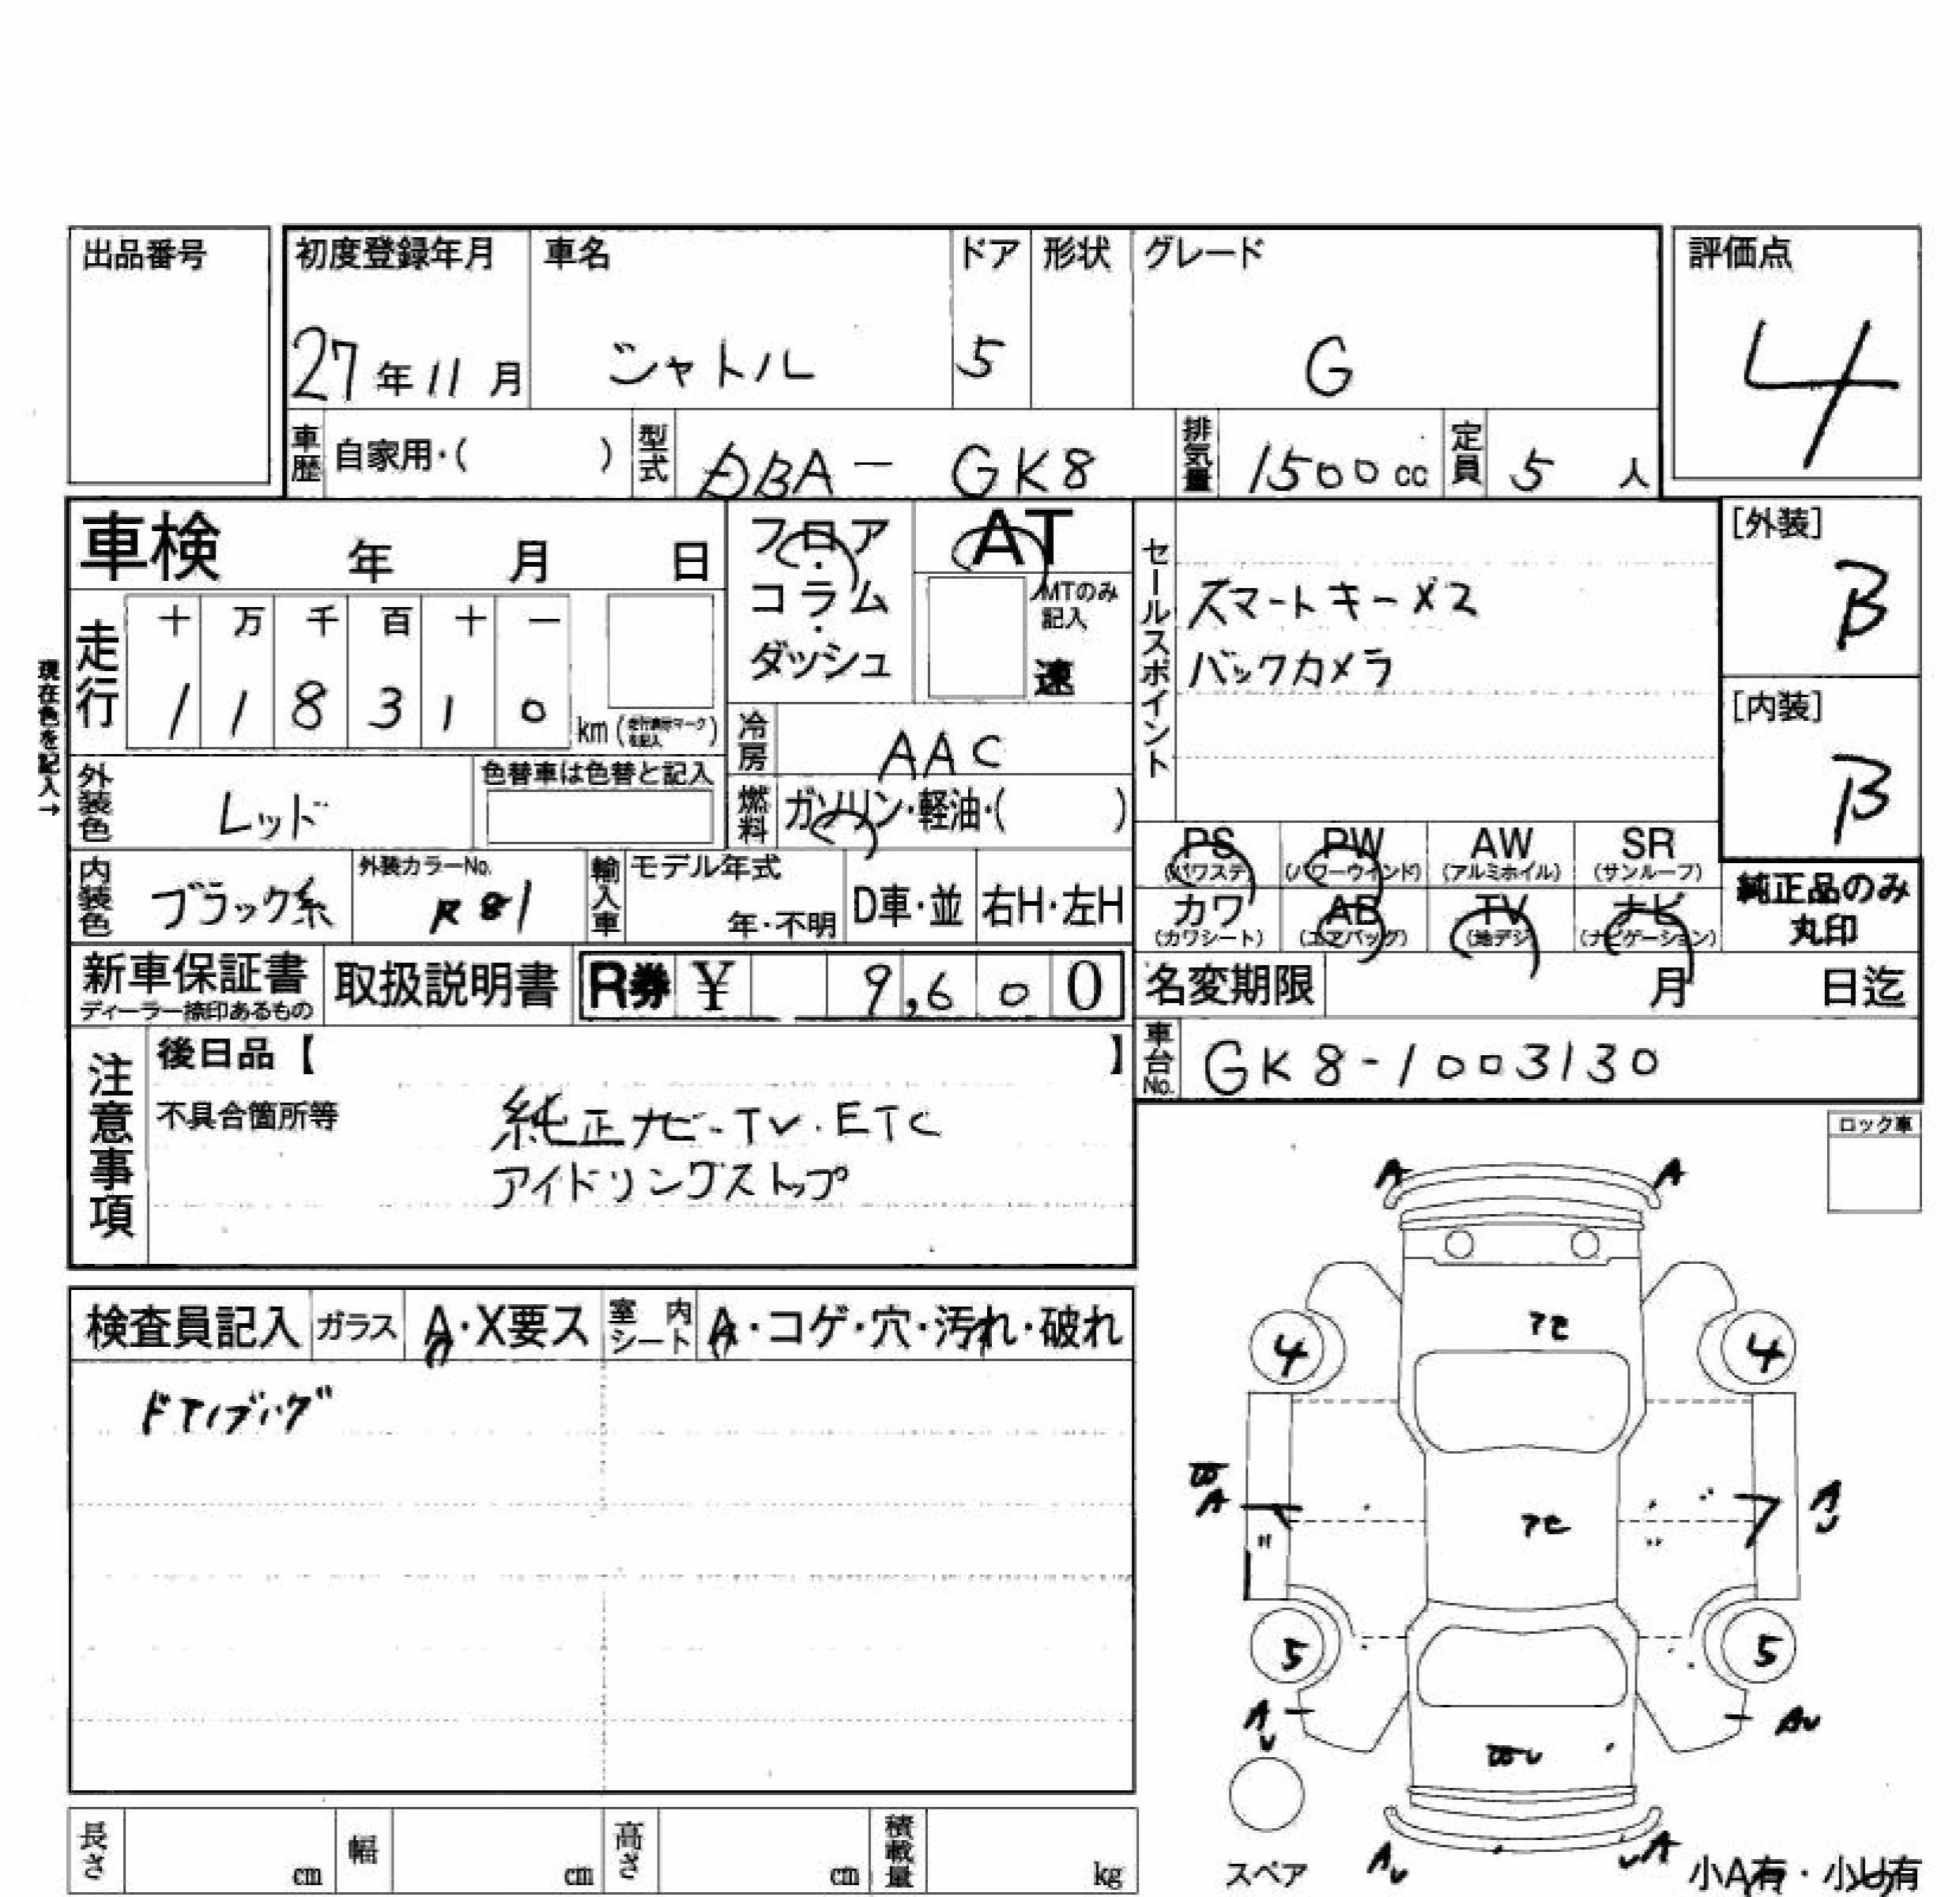 出品番号
初度登録年月 車名 ドア 形状 グレード 評価点
27年11月 シャトル 5 G 4
車歴 自家用・( ) 型式 DBA － GK8 排気量 1500cc 定員 5 人
車検 年 月 日
フロア・コラム・ダッシュ
AT
MTのみ記入
速
走行 十 万 千 百 十 一
1 1 8 3 1 0 km (走行表示マークを記入)
現在色を記入→
冷房 AAC
外装色 レッド
色替車は色替と記入
燃料 ガソリン・軽油・( )
内装色 ブラック系
外装カラーNo.
R81
輸入車 モデル年式 年・不明 D車・並 右H・左H
新車保証書
ディーラー捺印あるもの
取扱説明書 R券 ¥ 9,600
セールスポイント
スマートキー×2
バックカメラ
[外装]
B
[内装]
B
PS (パワステ) PW (パワーウインド) AW (アルミホイル) SR (サンルーフ)
カワ (カワシート) AB (エアバッグ) TV (地デジ) ナビ (ナビゲーション)
純正品のみ
丸印
名変期限 月 日迄
車台No. GK8-1003130
注意事項
後日品【 】
不具合箇所等
純正ナビ-TV・ETC
アイドリングストップ
ロック車
検査員記入 ガラス A・X要ス 室内シート A・コゲ・穴・汚れ・破れ
A A
4 4
A
5 5
AU
AU A
スペア
小A有・小U有
長さ cm 幅 cm 高さ cm 積載量 kg